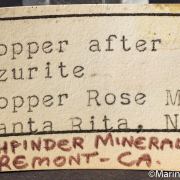 opper after
zurite
opper Rose M
anta Rita, N
HPINDER MINERAL
REMONT - CA.
©Marin